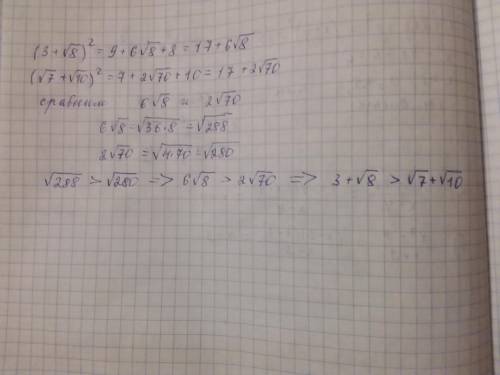 (3+√8)² = 9+6√8+8 = 17+6√8
(√7+√10)² = 7+2√70+10 = 17+2√70
сравним 6√8 и 2√70
6√8 = √36·8 = √288
2√70 = √4·70 = √280
√288 > √280 => 6√8 > 2√70 => 3+√8 > √7+√10